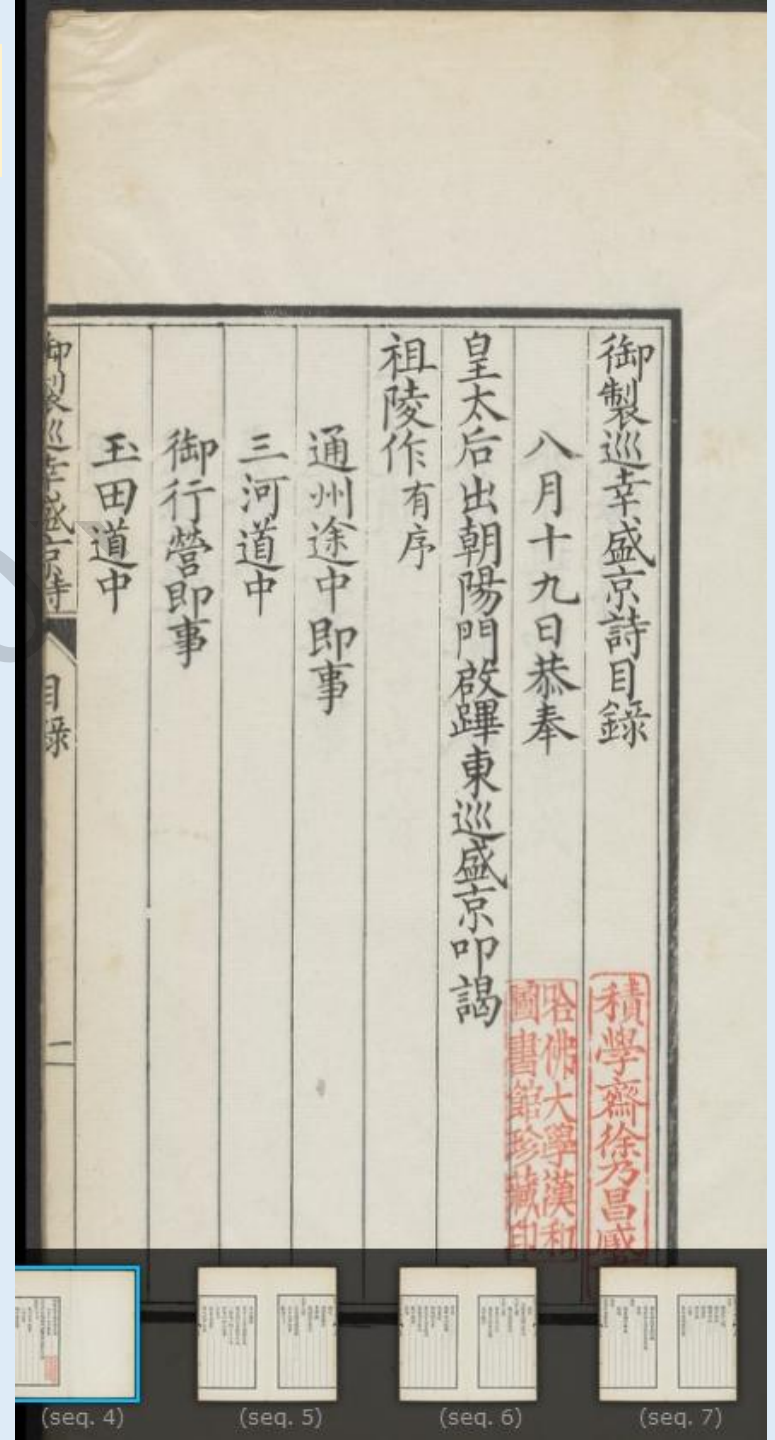 御製巡幸盛京詩目錄
八月十九日恭奉
皇太后出朝陽門啟蹕東巡盛京叩謁
祖陵作有序
通州途中即事
三河道中
御行營即事
玉田道中
御製巡幸盛京詩 目錄 一
積學齋徐乃昌
哈佛大學漢和
圖書館珍藏印
(seq. 4)
(seq. 5)
(seq. 6)
(seq. 7)